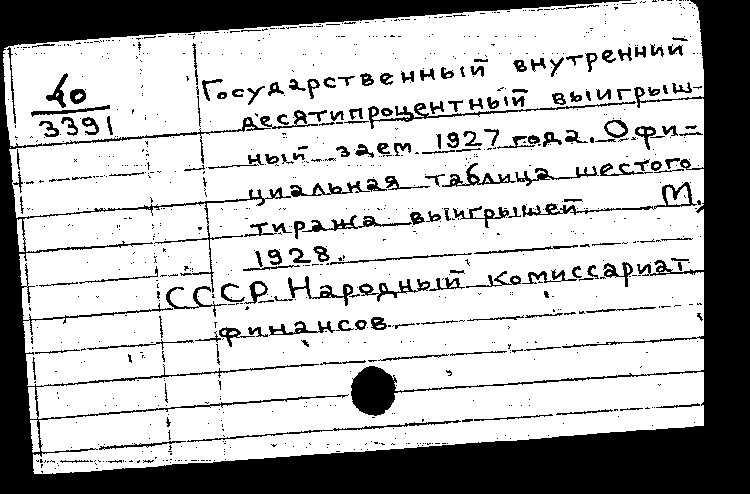 40
3391
Государственный внутренний
десятипроцентный выигрыш-
ный заем 1927 года. Офи-
циальная таблица шестого
тиража выигрышей М.,
1928.
СССР. Народный комиссариат
финансов.